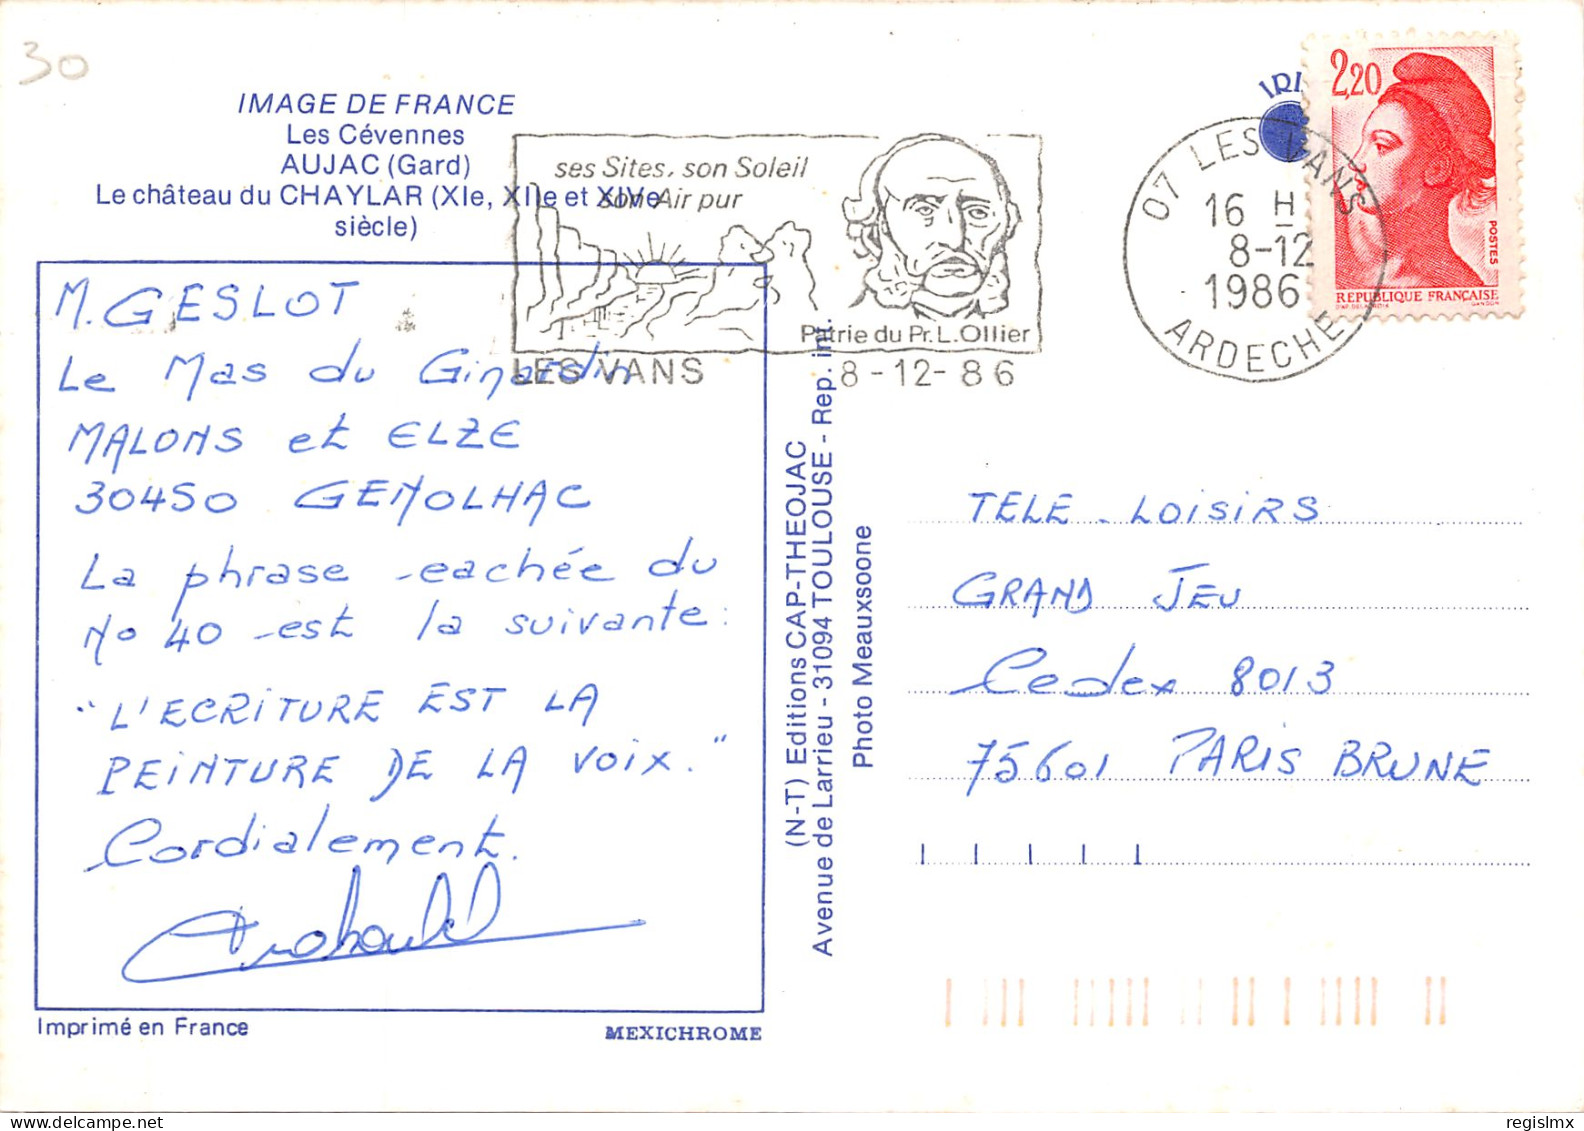 30
IMAGE DE FRANCE
Les Cévennes
AUJAC (Gard)
Le château du CHAYLAR (XIe, XIIe et XIVe
siècle)
ses Sites, son Soleil
son Air pur
Patrie du Pr. L. Ollier
LES VANS 8-12-86
07 LES VANS
16 H
8-12
1986
ARDECHE
2,20
POSTES
REPUBLIQUE FRANÇAISE
GANDON
M. GESLOT
Le Mas du Ginardin
MALONS et ELZE
30450 GENOLHAC
La phrase cachée du
No 40 est la suivante :
"L'ECRITURE EST LA
PEINTURE DE LA VOIX."
Cordialement.
(N-T) Editions CAP-THEOJAC
Avenue de Larrieu - 31094 TOULOUSE - Rep. int.
Photo Meauxsoone
TELE-LOISIRS
GRAND JEU
Cedex 8013
75601 PARIS BRUNE
Imprimé en France
MEXICHROME
regislmx